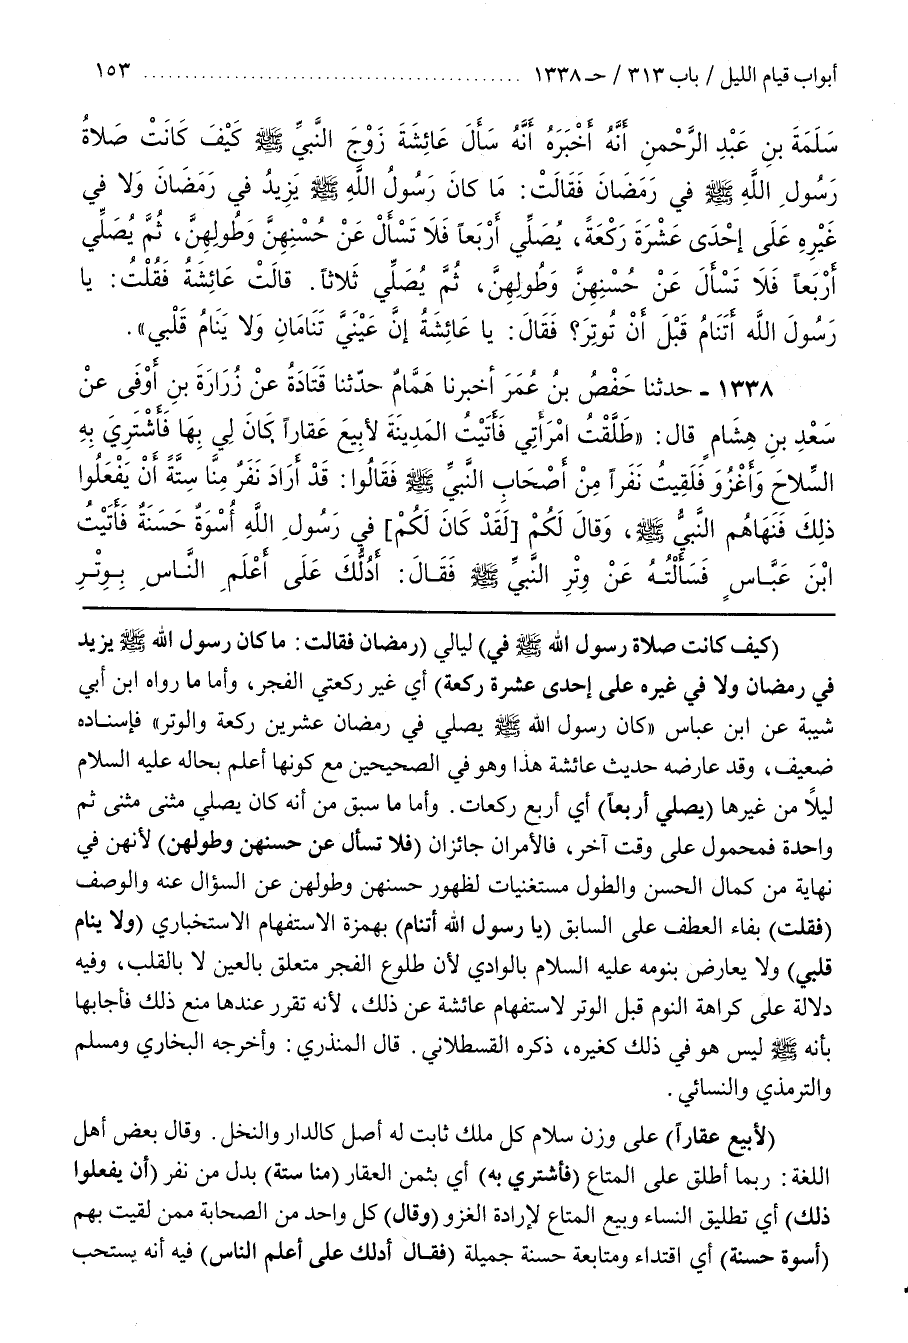 أبواب قيام الليل / باب ٣١٣ / حـ ١٣٣٨ ............................................. ١٥٣
سَلَمَةَ بنِ عَبْدِ الرَّحْمنِ أَنَّهُ أَخْبَرَهُ أَنَّهُ سَأَلَ عَائِشَةَ زَوْجَ النَّبِيِّ ﷺ كَيْفَ كَانَتْ صَلَاةُ
رَسُولِ اللَّهِ ﷺ في رَمَضَانَ فَقَالَتْ: مَا كانَ رَسُولُ اللَّهِ ﷺ يَزِيدُ في رَمَضَانَ وَلا في
غَيْرِهِ عَلَى إحْدَى عَشْرَةَ رَكْعَةً، يُصَلِّي أَرْبَعاً فَلَا تَسْأَلْ عَنْ حُسْنِهِنَّ وَطُولِهِنَّ، ثُمَّ يُصَلِّي
أَرْبَعاً فَلَا تَسْأَلَ عَنْ حُسْنِهِنَّ وَطُولِهِنَّ، ثُمَّ يُصَلِّي ثَلَاثاً. قالَتْ عَائِشَةُ فَقُلْتُ: يا
رَسُولَ اللَّه أَتَنَامُ قَبْلَ أَنْ تُوتِرَ؟ فَقَالَ: يا عَائِشَةُ إنَّ عَيْنَيَّ تَنَامَانِ وَلا يَنَامُ قَلْبي».
١٣٣٨ ـ حدثنا حَفْصُ بنُ عُمَرَ أخبرنا هَمَّامٌ حدّثنا قَتَادَةُ عنْ زُرَارَةَ بنِ أَوْفَى عنْ
سَعْدِ بنِ هِشَامٍ قال: «طَلَّقْتُ امْرَأَتِي فَأَتَيْتُ المَدِينَةَ لأبِيعَ عَقَاراً كَانَ لِي بِهَا فَأَشْتَرِيَ بِهِ
السِّلَاحَ وَأَغْزُوَ فَلَقِيتُ نَفَراً مِنْ أَصْحَابِ النَّبيِّ ﷺ فَقَالُوا: قَدْ أَرَادَ نَفَرٌ مِنَّا سِتَّةٌ أَنْ يَفْعَلُوا
ذلِكَ فَنَهَاهُم النَّبيُّ ﷺ، وَقَالَ لَكُمْ [لَقَدْ كَانَ لَكُمْ] في رَسُولِ اللَّهِ أُسْوَةٌ حَسَنَةٌ فَأَتَيْتُ
ابْنَ عَبَّاسٍ فَسَأَلْتُهُ عَنْ وِتْرِ النَّبيِّ ﷺ فَقَالَ: أَدُلُّكَ عَلَى أَعْلَمِ النَّاسِ بِوِتْرِ
(كيف كانت صلاة رسول الله ﷺ في) ليالي (رمضان فقالت: ما كان رسول الله ﷺ يزيد
في رمضان ولا في غيره على إحدى عشرة ركعة) أي غير ركعتي الفجر، وأما ما رواه ابن أبي
شيبة عن ابن عباس «كان رسول الله ﷺ يصلي في رمضان عشرين ركعة والوتر» فإسناده
ضعيف، وقد عارضه حديث عائشة هذا وهو في الصحيحين مع كونها أعلم بحاله عليه السلام
ليلاً من غيرها (يصلي أربعاً) أي أربع ركعات. وأما ما سبق من أنه كان يصلي مثنى مثنى ثم
واحدة فمحمول على وقت آخر، فالأمران جائزان (فلا تسأل عن حسنهن وطولهن) لأنهن في
نهاية من كمال الحسن والطول مستغنيات لظهور حسنهن وطولهن عن السؤال عنه والوصف
(فقلت) بفاء العطف على السابق (يا رسول الله أتنام) بهمزة الاستفهام الاستخباري (ولا ينام
قلبي) ولا يعارض بنومه عليه السلام بالوادي لأن طلوع الفجر متعلق بالعين لا بالقلب، وفيه
دلالة على كراهة النوم قبل الوتر لاستفهام عائشة عن ذلك، لأنه تقرر عندها منع ذلك فأجابها
بأنه ﷺ ليس هو في ذلك كغيره، ذكره القسطلاني. قال المنذري: وأخرجه البخاري ومسلم
والترمذي والنسائي.
(لأبيع عقاراً) على وزن سلام كل ملك ثابت له أصل كالدار والنخل. وقال بعض أهل
اللغة: ربما أطلق على المتاع (فأشتري به) أي بثمن العقار (منا ستة) بدل من نفر (أن يفعلوا
ذلك) أي تطليق النساء وبيع المتاع لإرادة الغزو (وقال) كل واحد من الصحابة ممن لقيت بهم
(أسوة حسنة) أي اقتداء ومتابعة حسنة جميلة (فقال أدلك على أعلم الناس) فيه أنه يستحب